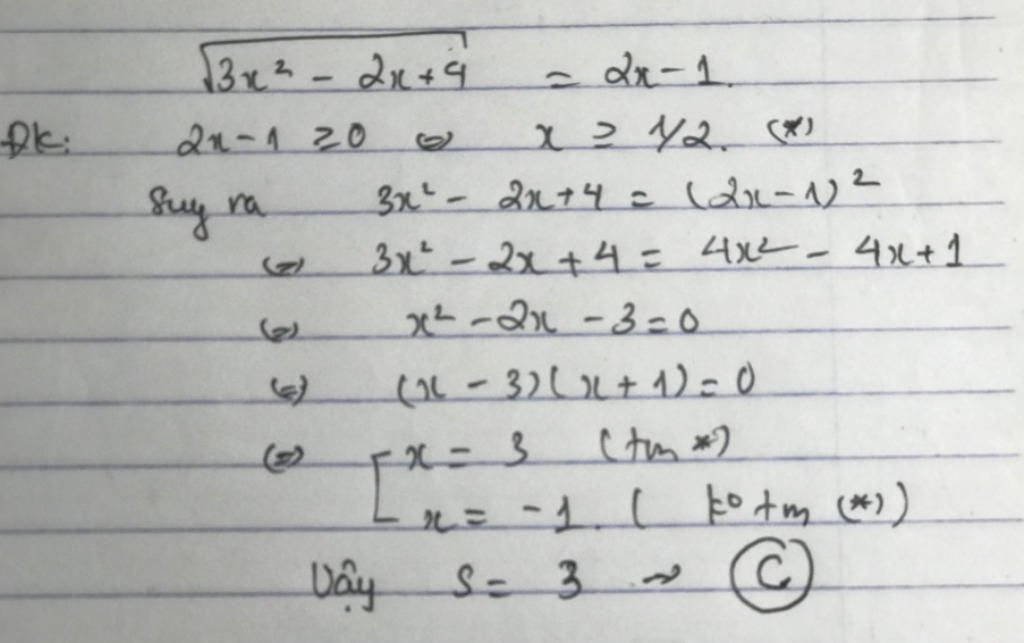 √3x² - 2x+4 = 2x-1.
ĐK: 2x-1 ≥ 0 ⇔ x ≥ 1/2. (*)
Suy ra 3x² - 2x+4 = (2x-1)²
⇔ 3x² - 2x + 4 = 4x² - 4x+1
⇔ x² - 2x - 3 = 0
⇔ (x - 3)(x + 1) = 0
⇔ [ x = 3 (tm *)
x = -1. ( k° tm (*) )
Vậy S = 3 → C